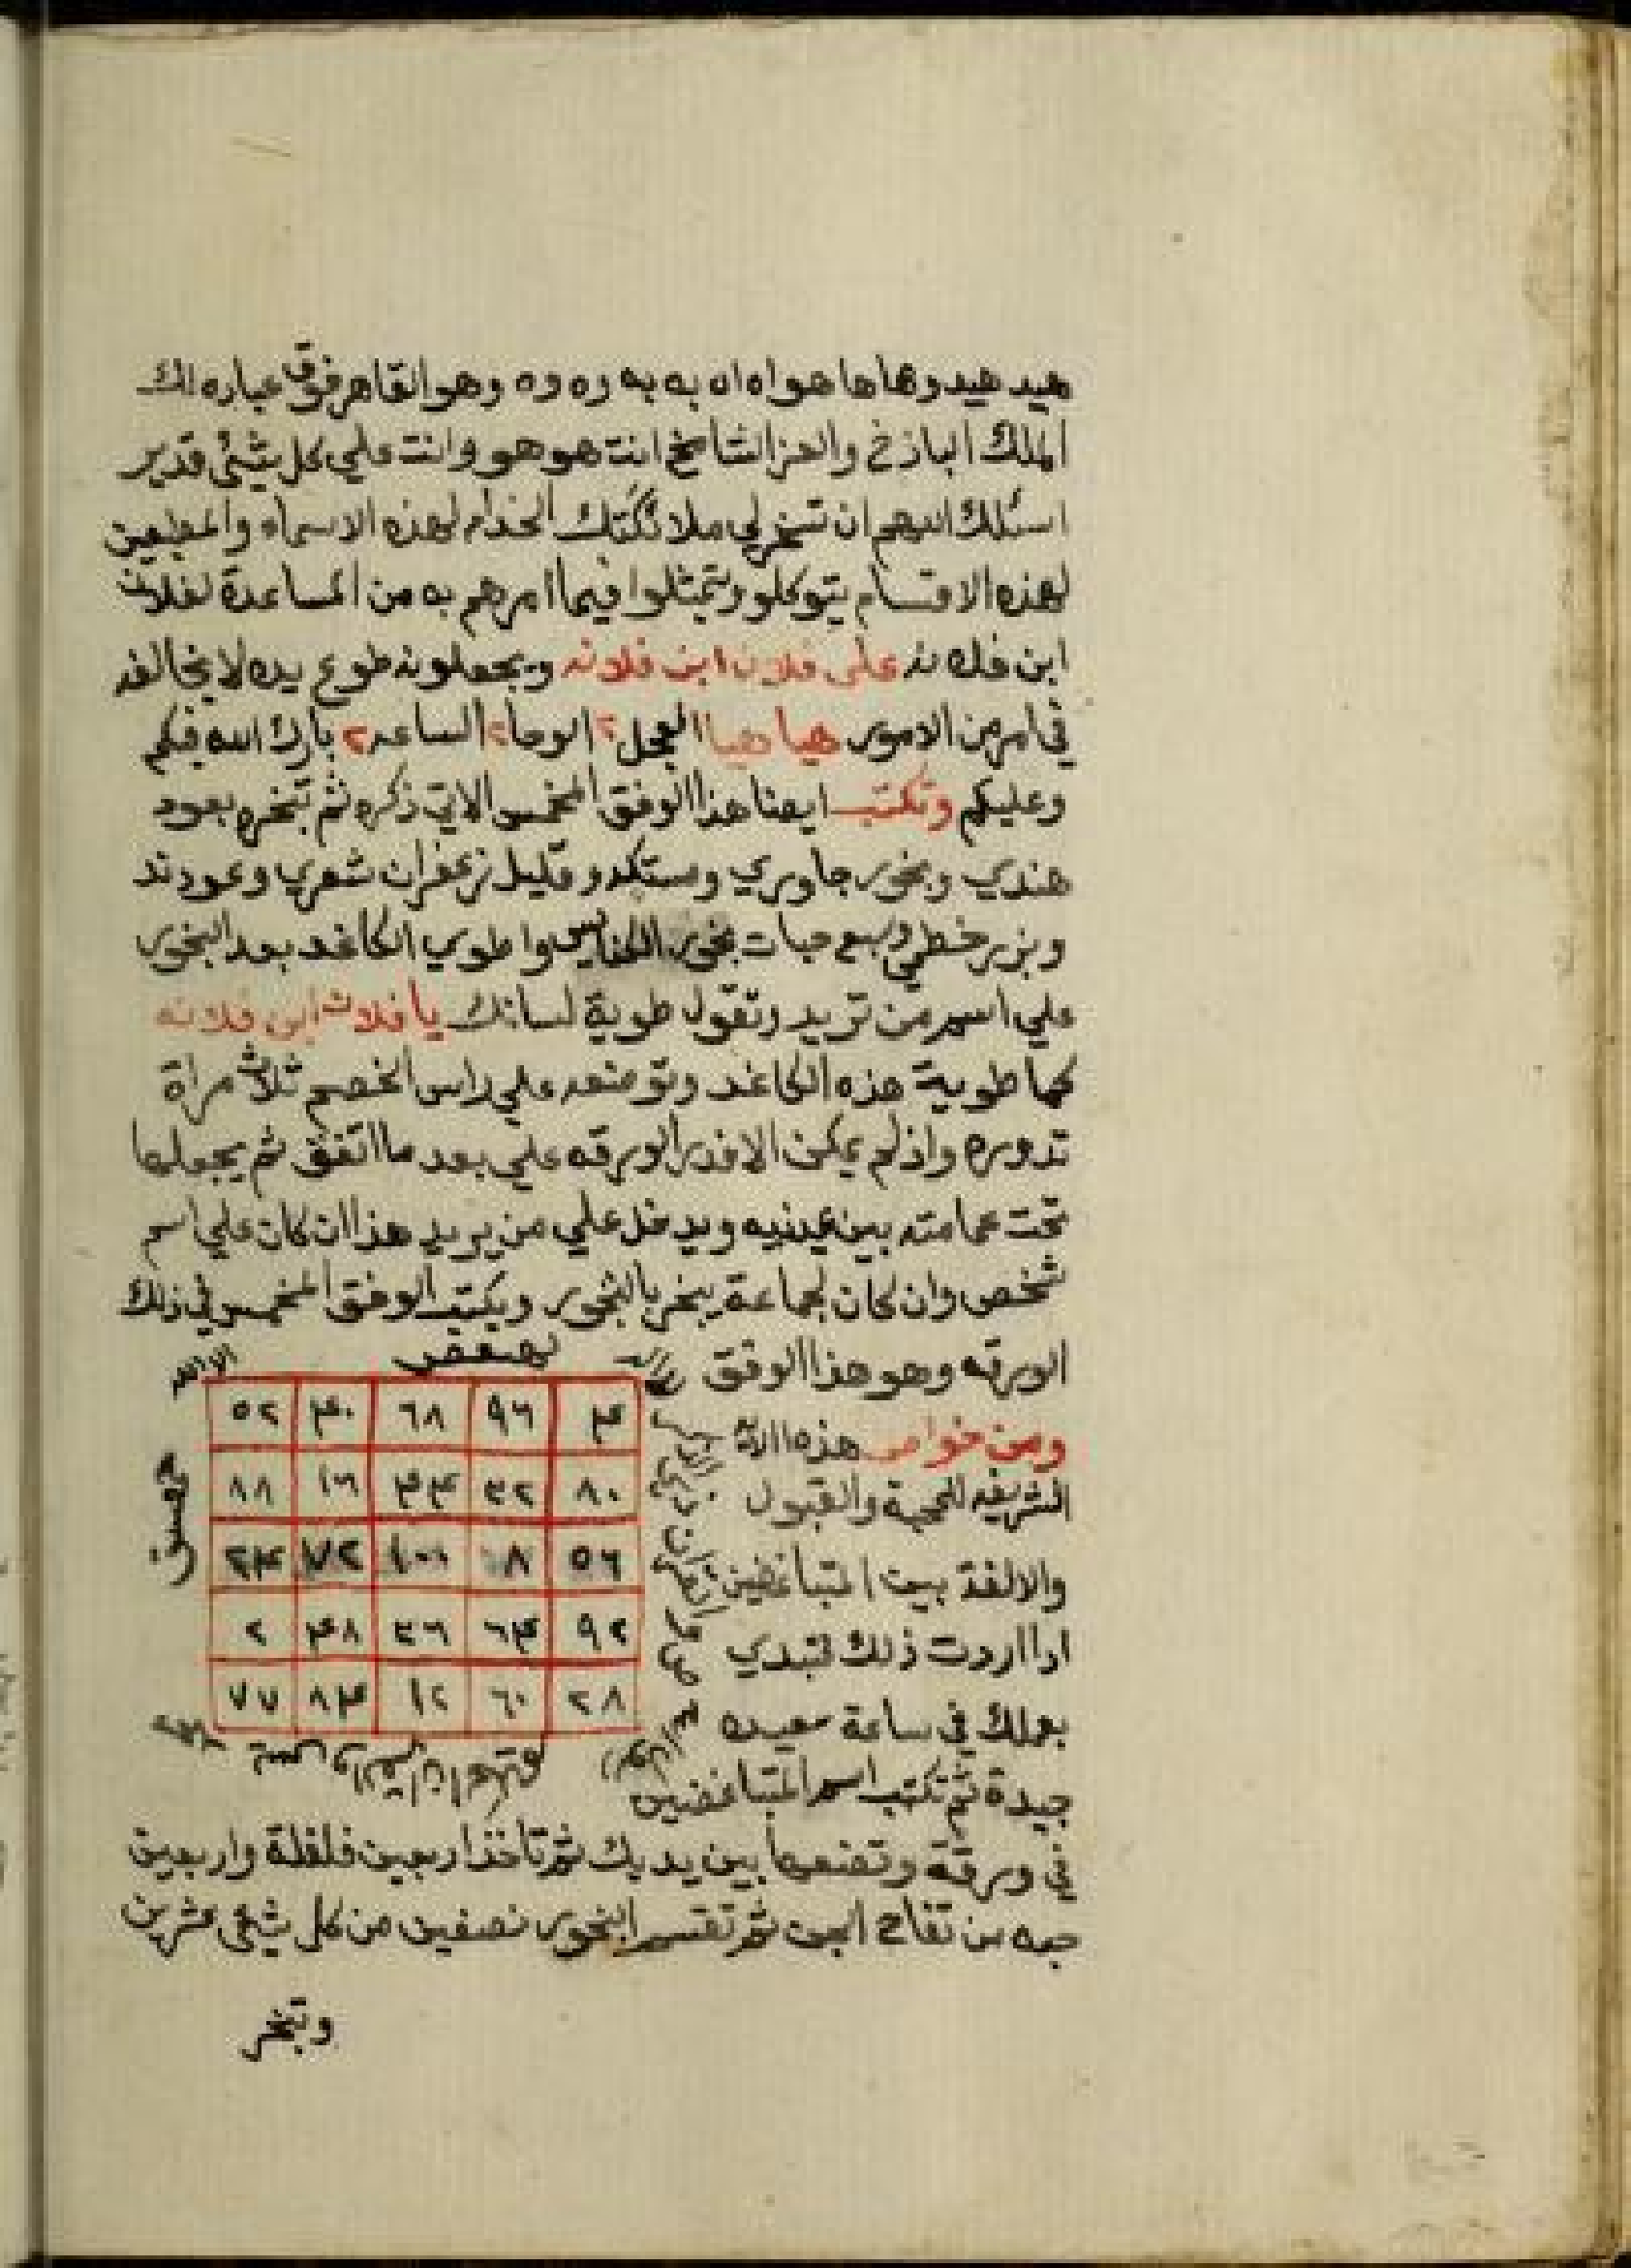 هيد هيد وها ها هو اه اه به به وه وه وهو القاهر فوق عباده لك
الملك الباذخ والعز الشامخ انت هو هو وانت علي كل شيئ قدير
اسئلك اللهم ان تسخر لي ملائكتك الخدام لهذه الاسماء والمطيعين
لهذه الاقسام يتوكلو ويتمثلوا فيما أمرهم به من المساعدة لفلان
ابن فلانه على فلان ابن فلانه ويجعلونه طوع يده لا يخالفه
في امر من الامور هيا هيا العجل ٢ الوحا ٢ الساعه ٢ بارك الله فيكم
وعليكم وتكتب ايضا هذا الوفق المخمس الاتي ذكره ثم تبخره بعود
هندي وبخور جاوري ومستكه وقليل زعفران شعري وعود ند
وبزر خطمي وسبع حبات بخور واطوي الكاغد بعد البخور
علي اسم من تريد وتقول طوية لسانك يا فلان ابن فلانه
كما طوية هذه الكاغد وتوضعه علي راس الخصم ثلاث مراة
تدوره واذ لم يمكن الا فدر الورقه علي بعد ما اتفق ثم يجعلها
تحت عمامته بين عينيه ويدخل علي من يريد هذا ان كان علي اسم
شخص وان كان لجماعة يبخر بالبخور ويكتب الوفق المخمس في ذلك
الورقه وهو هذا الوفق
كهيعص
الا الله
٥٢ ٤٠ ٦٨ ٩٦ ٤
٨٨ ١٦ ٤٤ ٣٢ ٨٠
٢٤ ٧٢ ١٠٠ ٨ ٥٦
٢ ٤٨ ٣٦ ٦٤ ٩٢
٧٧ ٨٤ ١٢ ٦٠ ٢٨
حمعسق
ومن خواص هذه الاية
الشريفه للمحبة والقبول
والالفة بين المتباغضين
اذا اردت ذلك تبتدي
بعملك في ساعة سعيده
جيدة ثم تكتب اسم المتباغضين
في ورقة وتضعها بين يديك ثم تاخذ اربعين فلفلة واربعين
حبه من تفاح الجن ثم تقسم البخور نصفين من كل شيئ عشرين
وتبخر